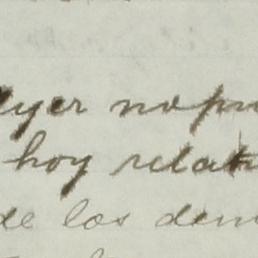 ayer no pu
hoy relat
de los dem